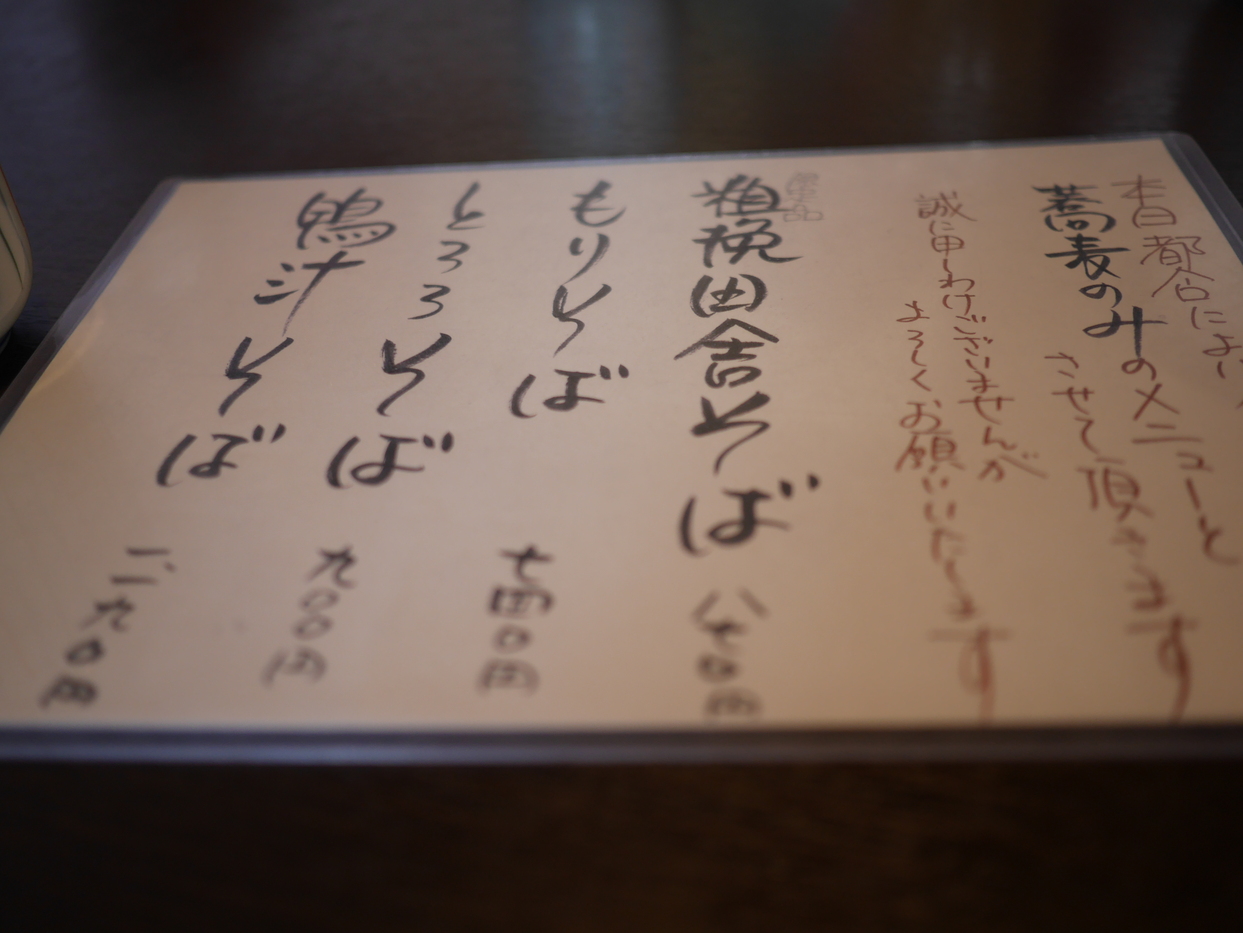 本日都合により
蕎麦のみのメニューと
させて頂きます
誠に申しわけございませんが
よろしくお願いいたします
単品
粗挽田舎そば 八七〇円
もりそば 七四〇円
とろろそば 九〇〇円
鴨汁そば 一、一九〇円